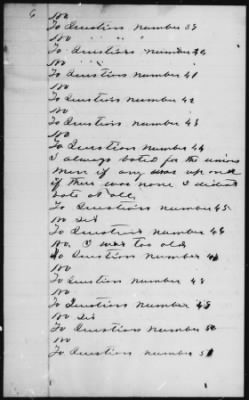 6
no
To Question number 39
no " " "
To Question number 40
no " " "
To Question number 41
no
To Question number 42
no
To Question number 43
no
To Question number 44
I always voted for the union
men if any was up and
if there was none I didnt
vote at all
To Question number 45
no Sir
To Question number 46
No, I was too old
To Question number 47
no
To Question number 48
no
To Question number 49
no Sir
To Question number 50
no
To Question number 51